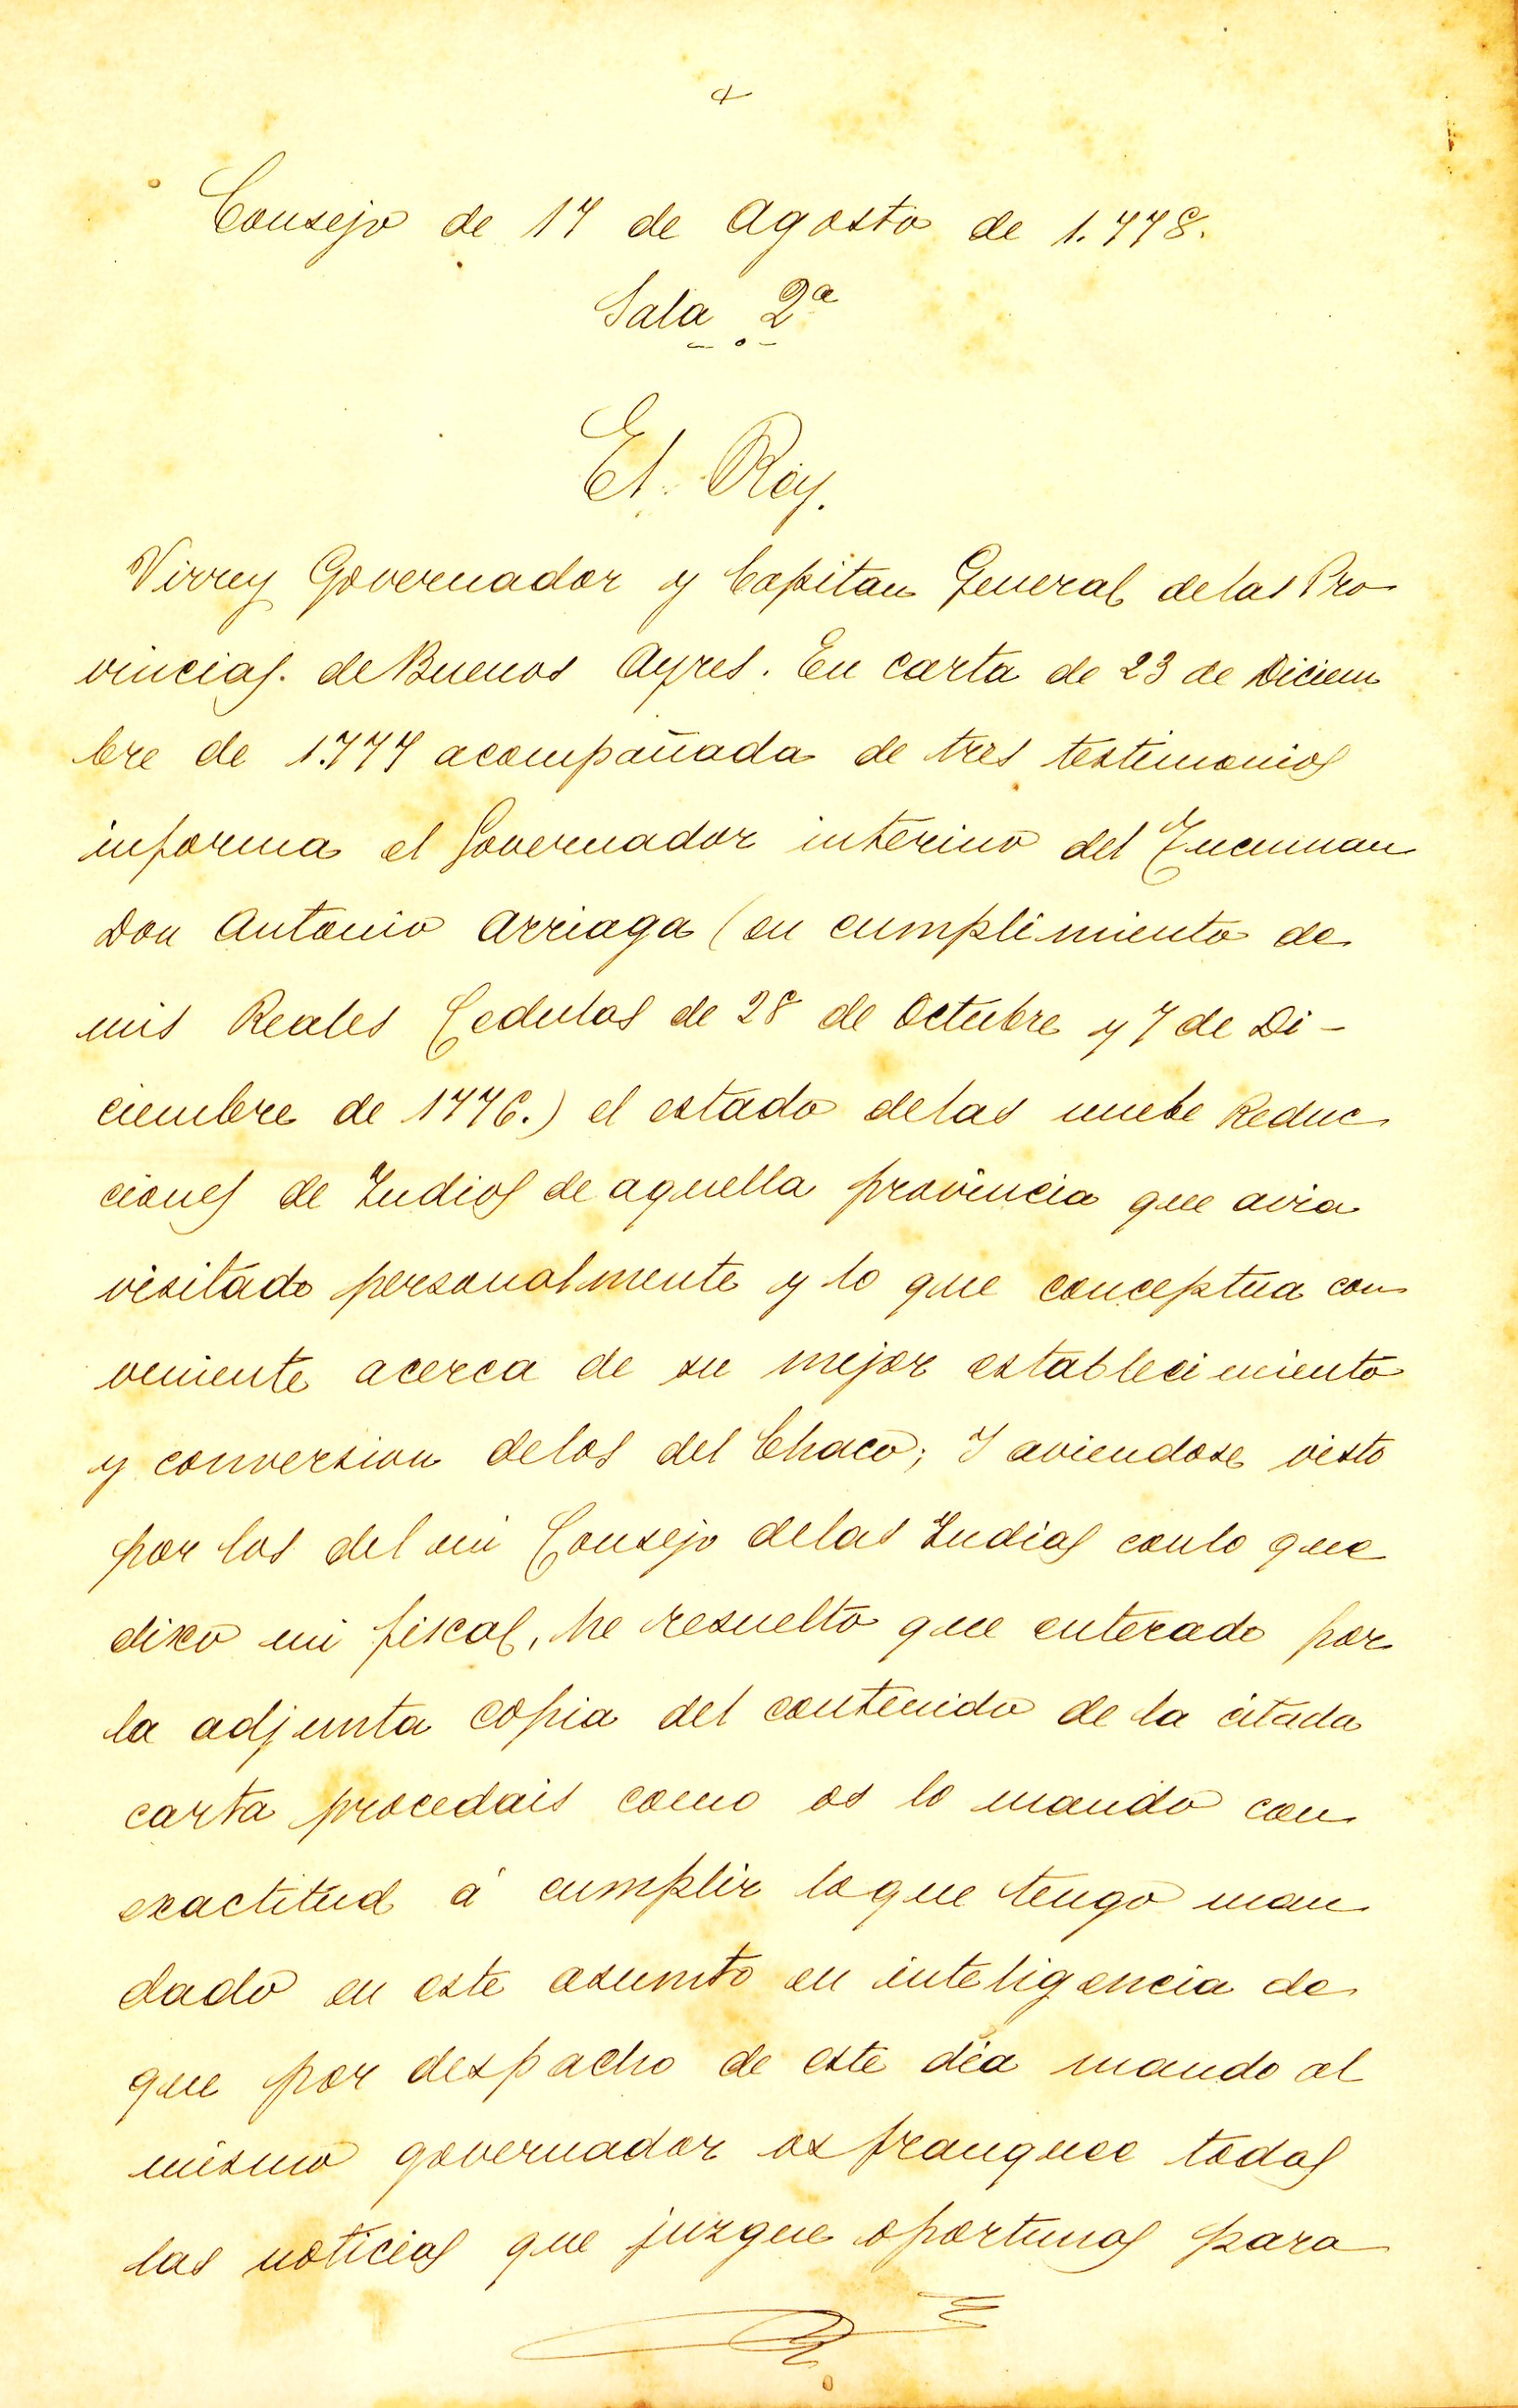 Consejo de 17 de Agosto de 1.778.
Sala 2ª
El Rey.
Virrey Governador y Capitan General delas Pro
vincias. de Buenos Ayres. En carta de 23 de Diciem
bre de 1.777 acompañada de tres testimonios
informa el Governador interino del Tucuman
Don Antonio Arriaga (en cumplimiento de
mis Reales Cedulas de 28 de Octubre y 7 de Di-
ciembre de 1776.) el estado delas nuebe Reduc
ciones de Indios de aquella provincia que avia
visitado personalmente y lo que conceptua con
veniente acerca de su mejor establecimiento
y conversion delos del Chaco; I aviendose visto
por los del mi Consejo delas Indias conlo que
dixo mi fiscal, he resuelto que enterado por
la adjunta copia del contenido de la citada
carta procedais como os lo mando con
exactitud á cumplir loque tengo man
dado en este asumto en inteligencia de
que por despacho de este dia mando al
mismo governador os franquee todas
las noticias que juzgue oportunas para